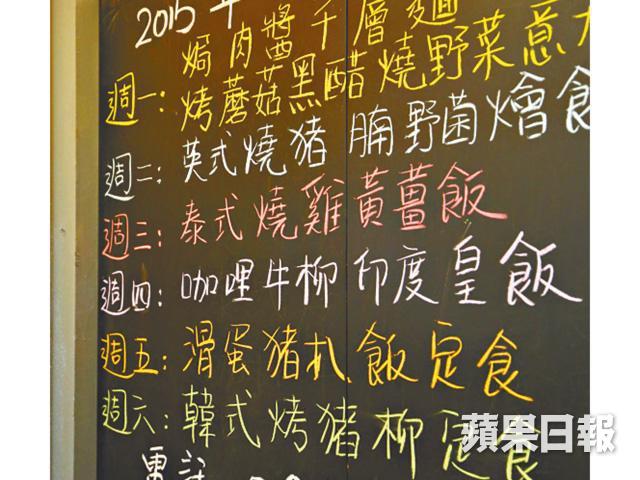 2015 年
焗肉醬千層麵
週一: 烤蘑菇黑醋燒野菜意
週二: 英式燒豬腩野菌燴食
週三: 泰式燒雞黃薑飯
週四: 咖哩牛柳印度皇飯
週五: 滑蛋豬扒飯定食
週六: 韓式烤豬柳定食
蘋果日報